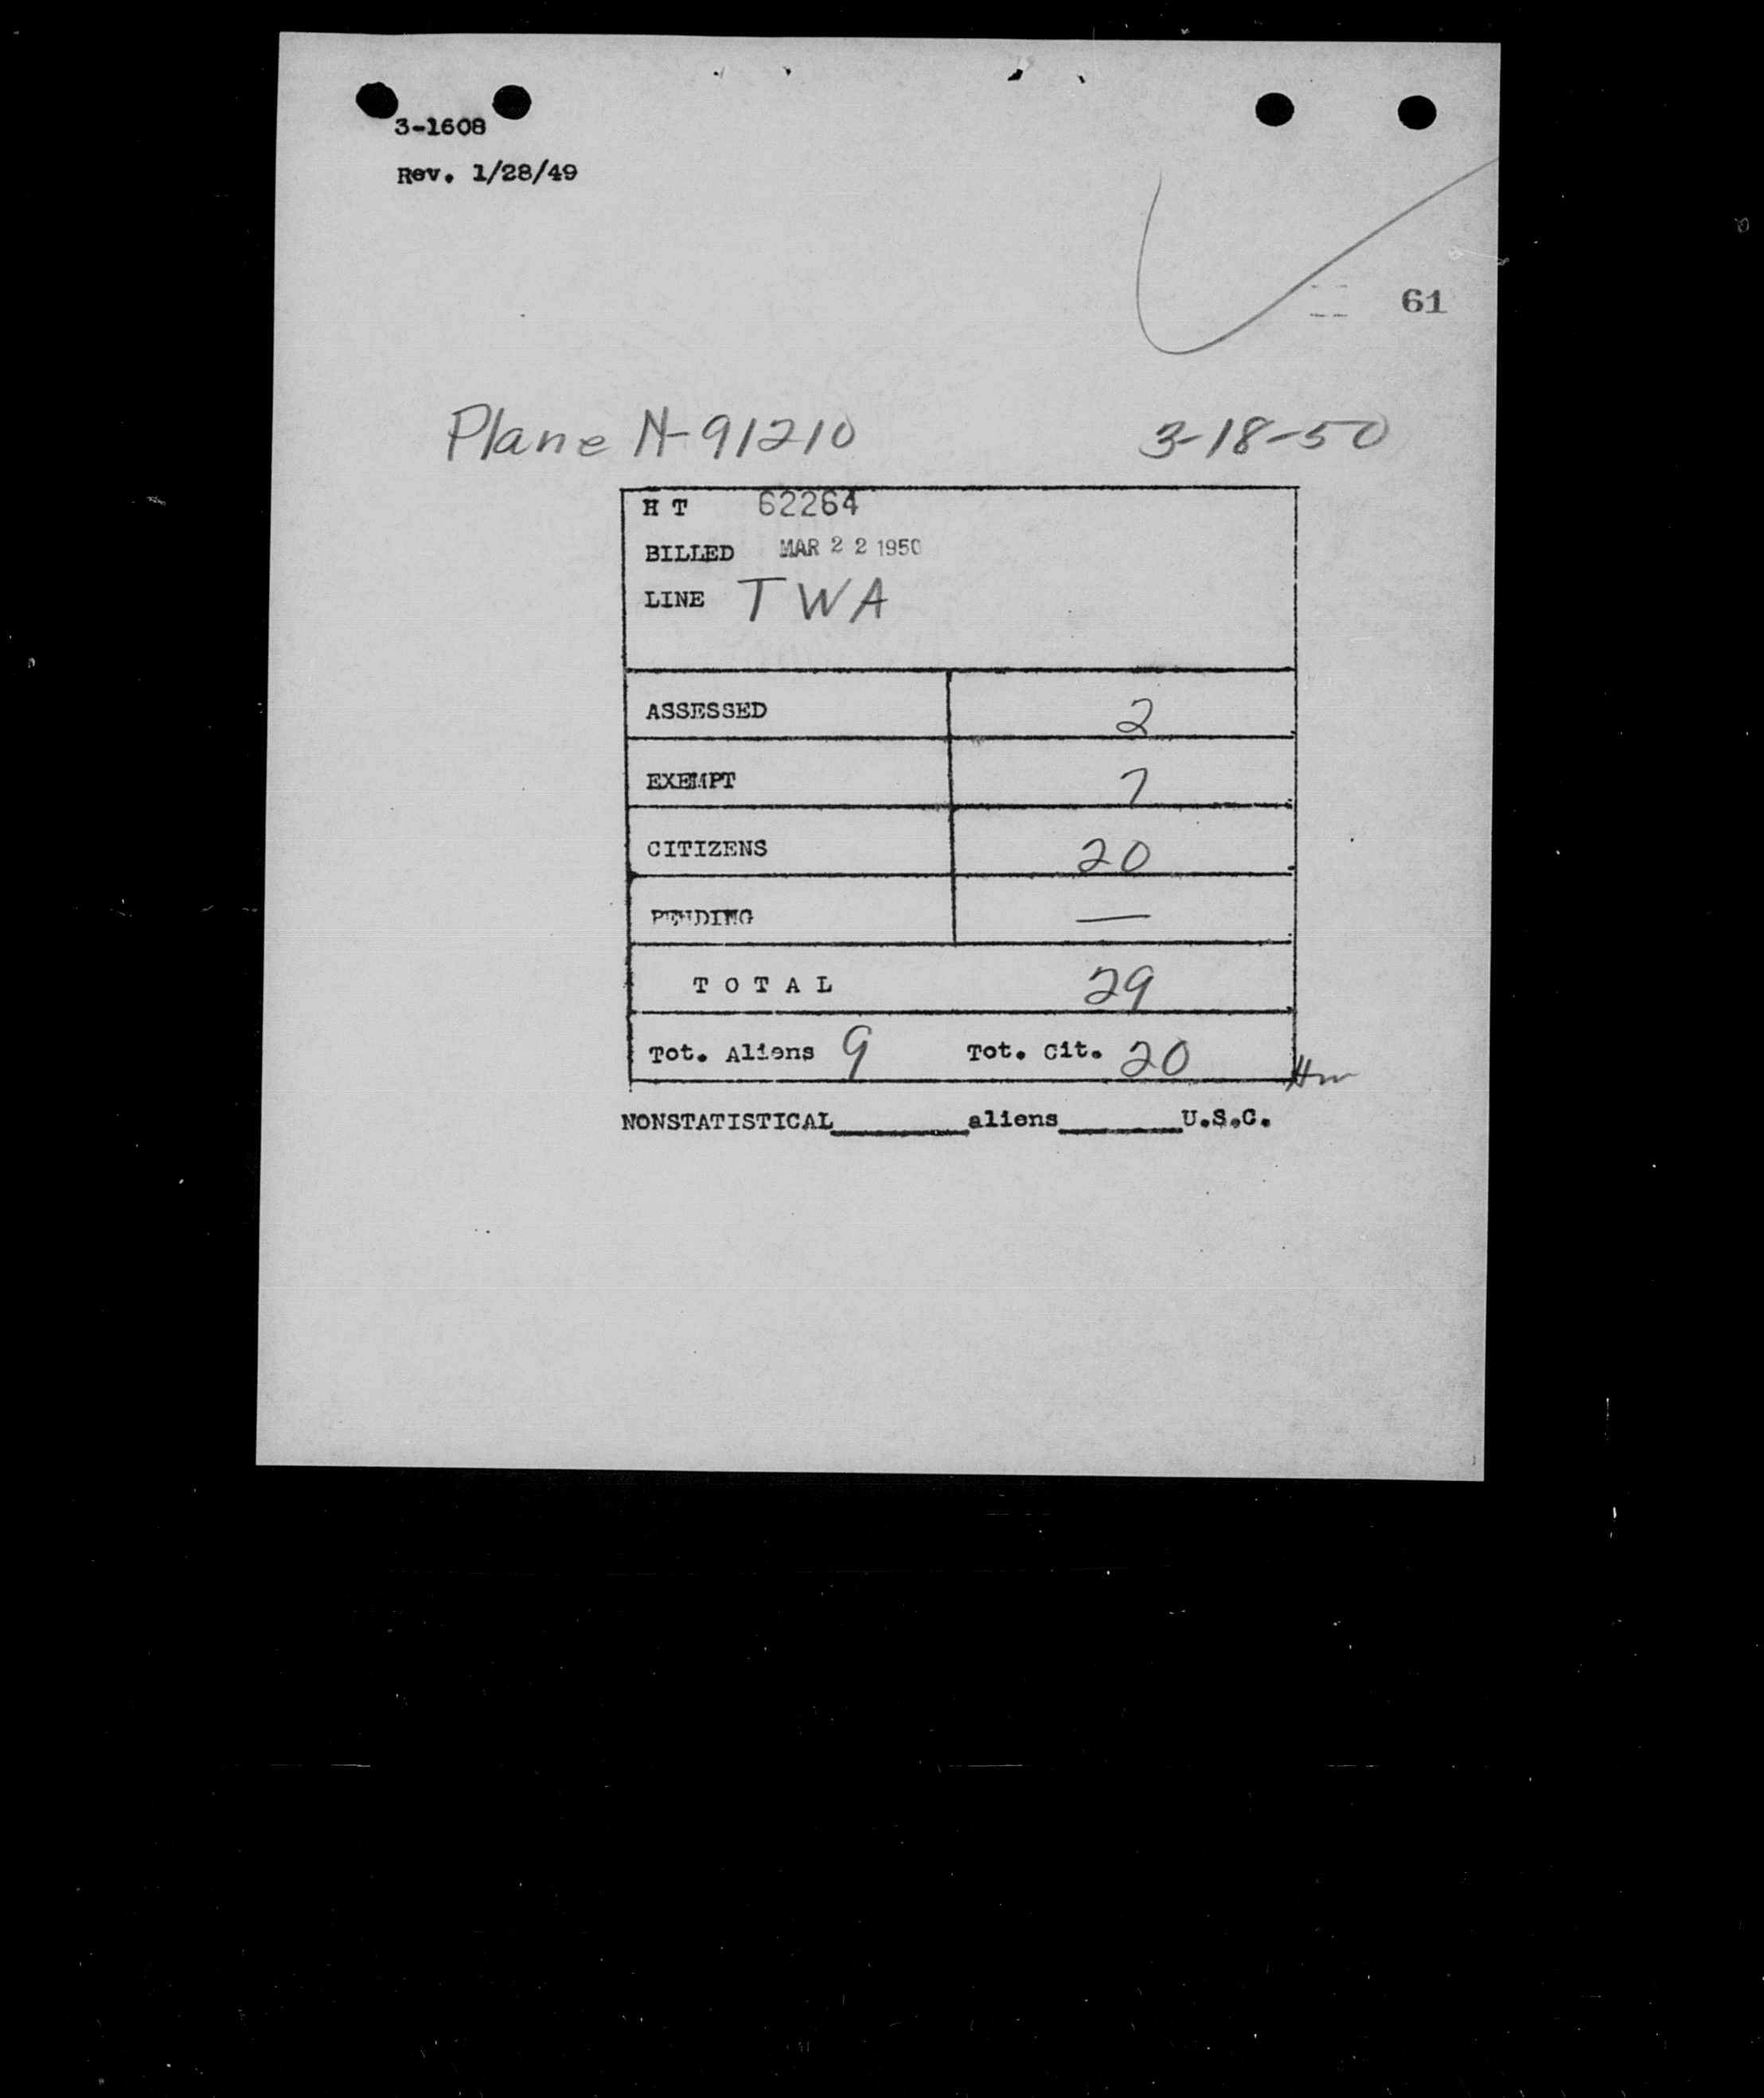 3-1608
Rev. 1/28/49
61
Plane N-91210 3-18-50
H T 62264
BILLED MAR 22 1950
LINE TWA
ASSESSED 2
EXEMPT 7
CITIZENS 20
PENDING —
TOTAL 29
Tot. Aliens 9 Tot. Cit. 20
NONSTATISTICAL________aliens_______U.S.C.